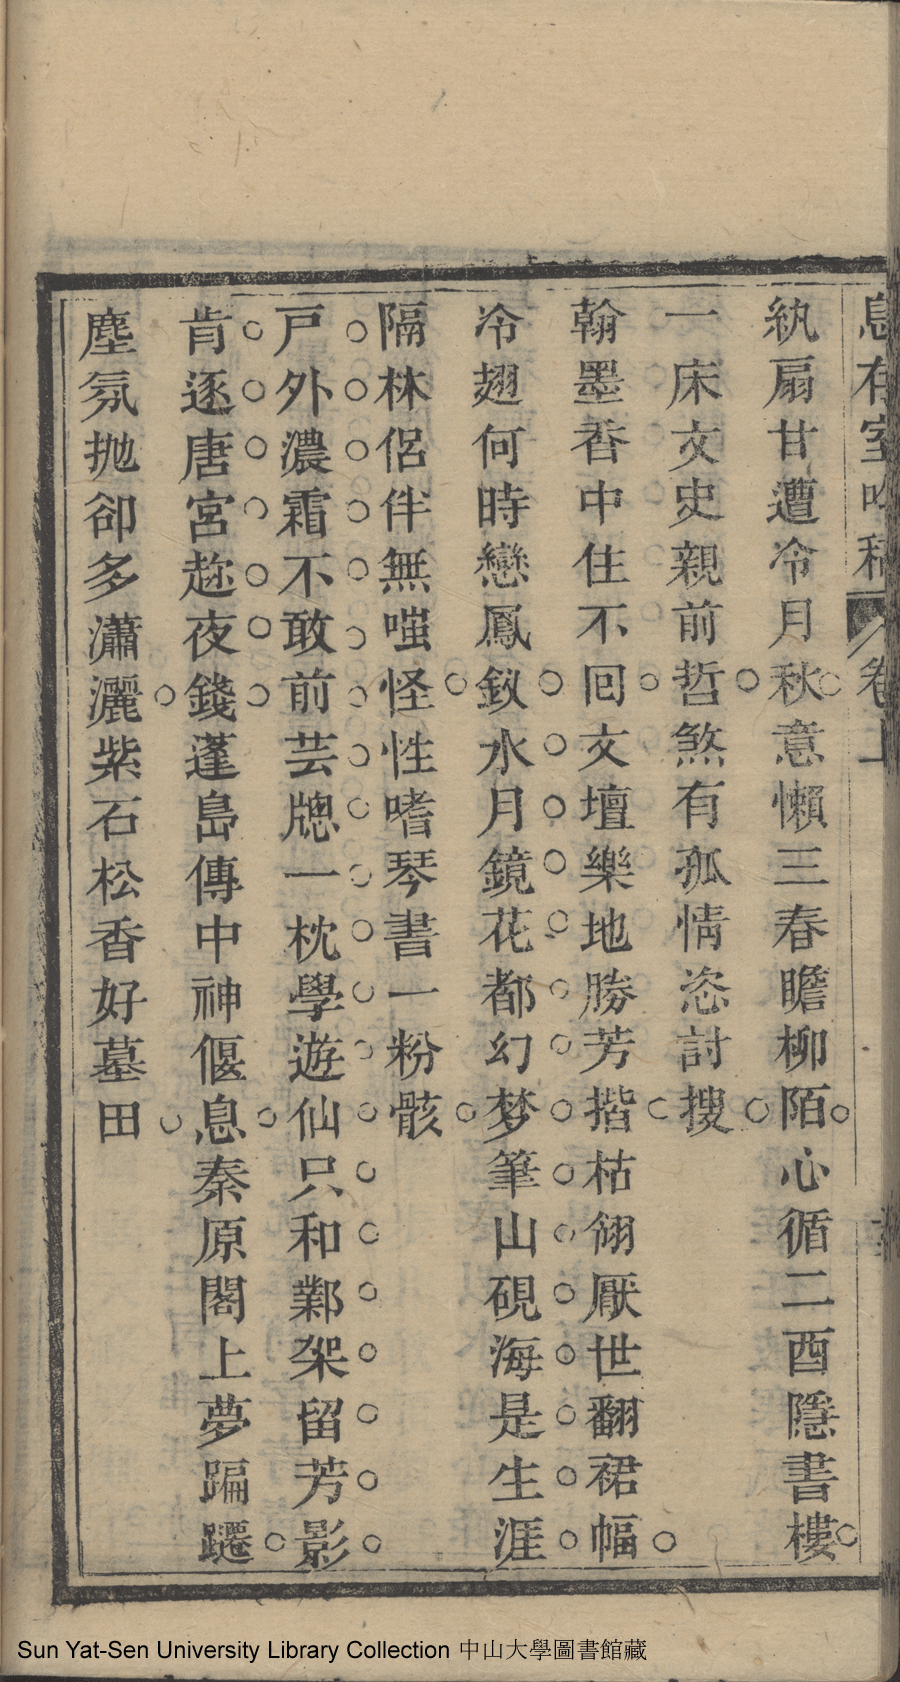 息存室吟稿 卷上
紈扇甘遭冷月秋意懶三春瞻柳陌心循二酉隱書樓
一床文史親前哲煞有孤情恣討搜
翰墨香中住不回文壇樂地勝芳揩枯翎厭世翻裙幅
冷翅何時戀鳳釵水月鏡花都幻梦筆山硯海是生涯
隔林侶伴無嗤怪性嗜琴書一粉骸
戸外濃霜不敢前芸牕一枕學遊仙只和鄴架留芳影
肯逐唐宮趂夜錢蓬島傳中神偃息秦原閣上夢蹁躚
塵氛抛卻多瀟灑紫石松香好墓田
Sun Yat-Sen University Library Collection 中山大學圖書館藏